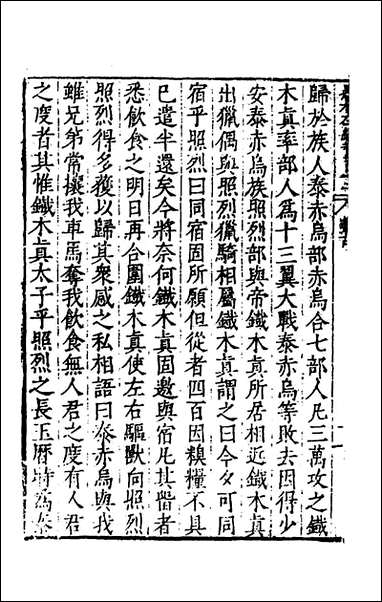 歸於族人泰赤烏部赤烏合七部人凡三萬攻之鐵
木真率部人爲十三翼大戰泰赤烏等敗去因得少
安泰赤烏族照烈部與帝鐵木真所居相近鐵木真
出獵偶與照烈獵騎相屬鐵木真謂之曰今夕可同
宿乎照烈曰同宿固所願但從者四百因糗糧不具
已遣半還矣今將奈何鐵木真固邀與宿凡其畱者
悉飲食之明日再合圍鐵木真使左右驅獸向照烈
照烈得多獲以歸其衆感之私相語曰泰赤烏與我
雖兄弟常攘我車馬奪我飲食無人君之度有人君
之度者其惟鐵木真太子乎照烈之長玉曆時爲泰